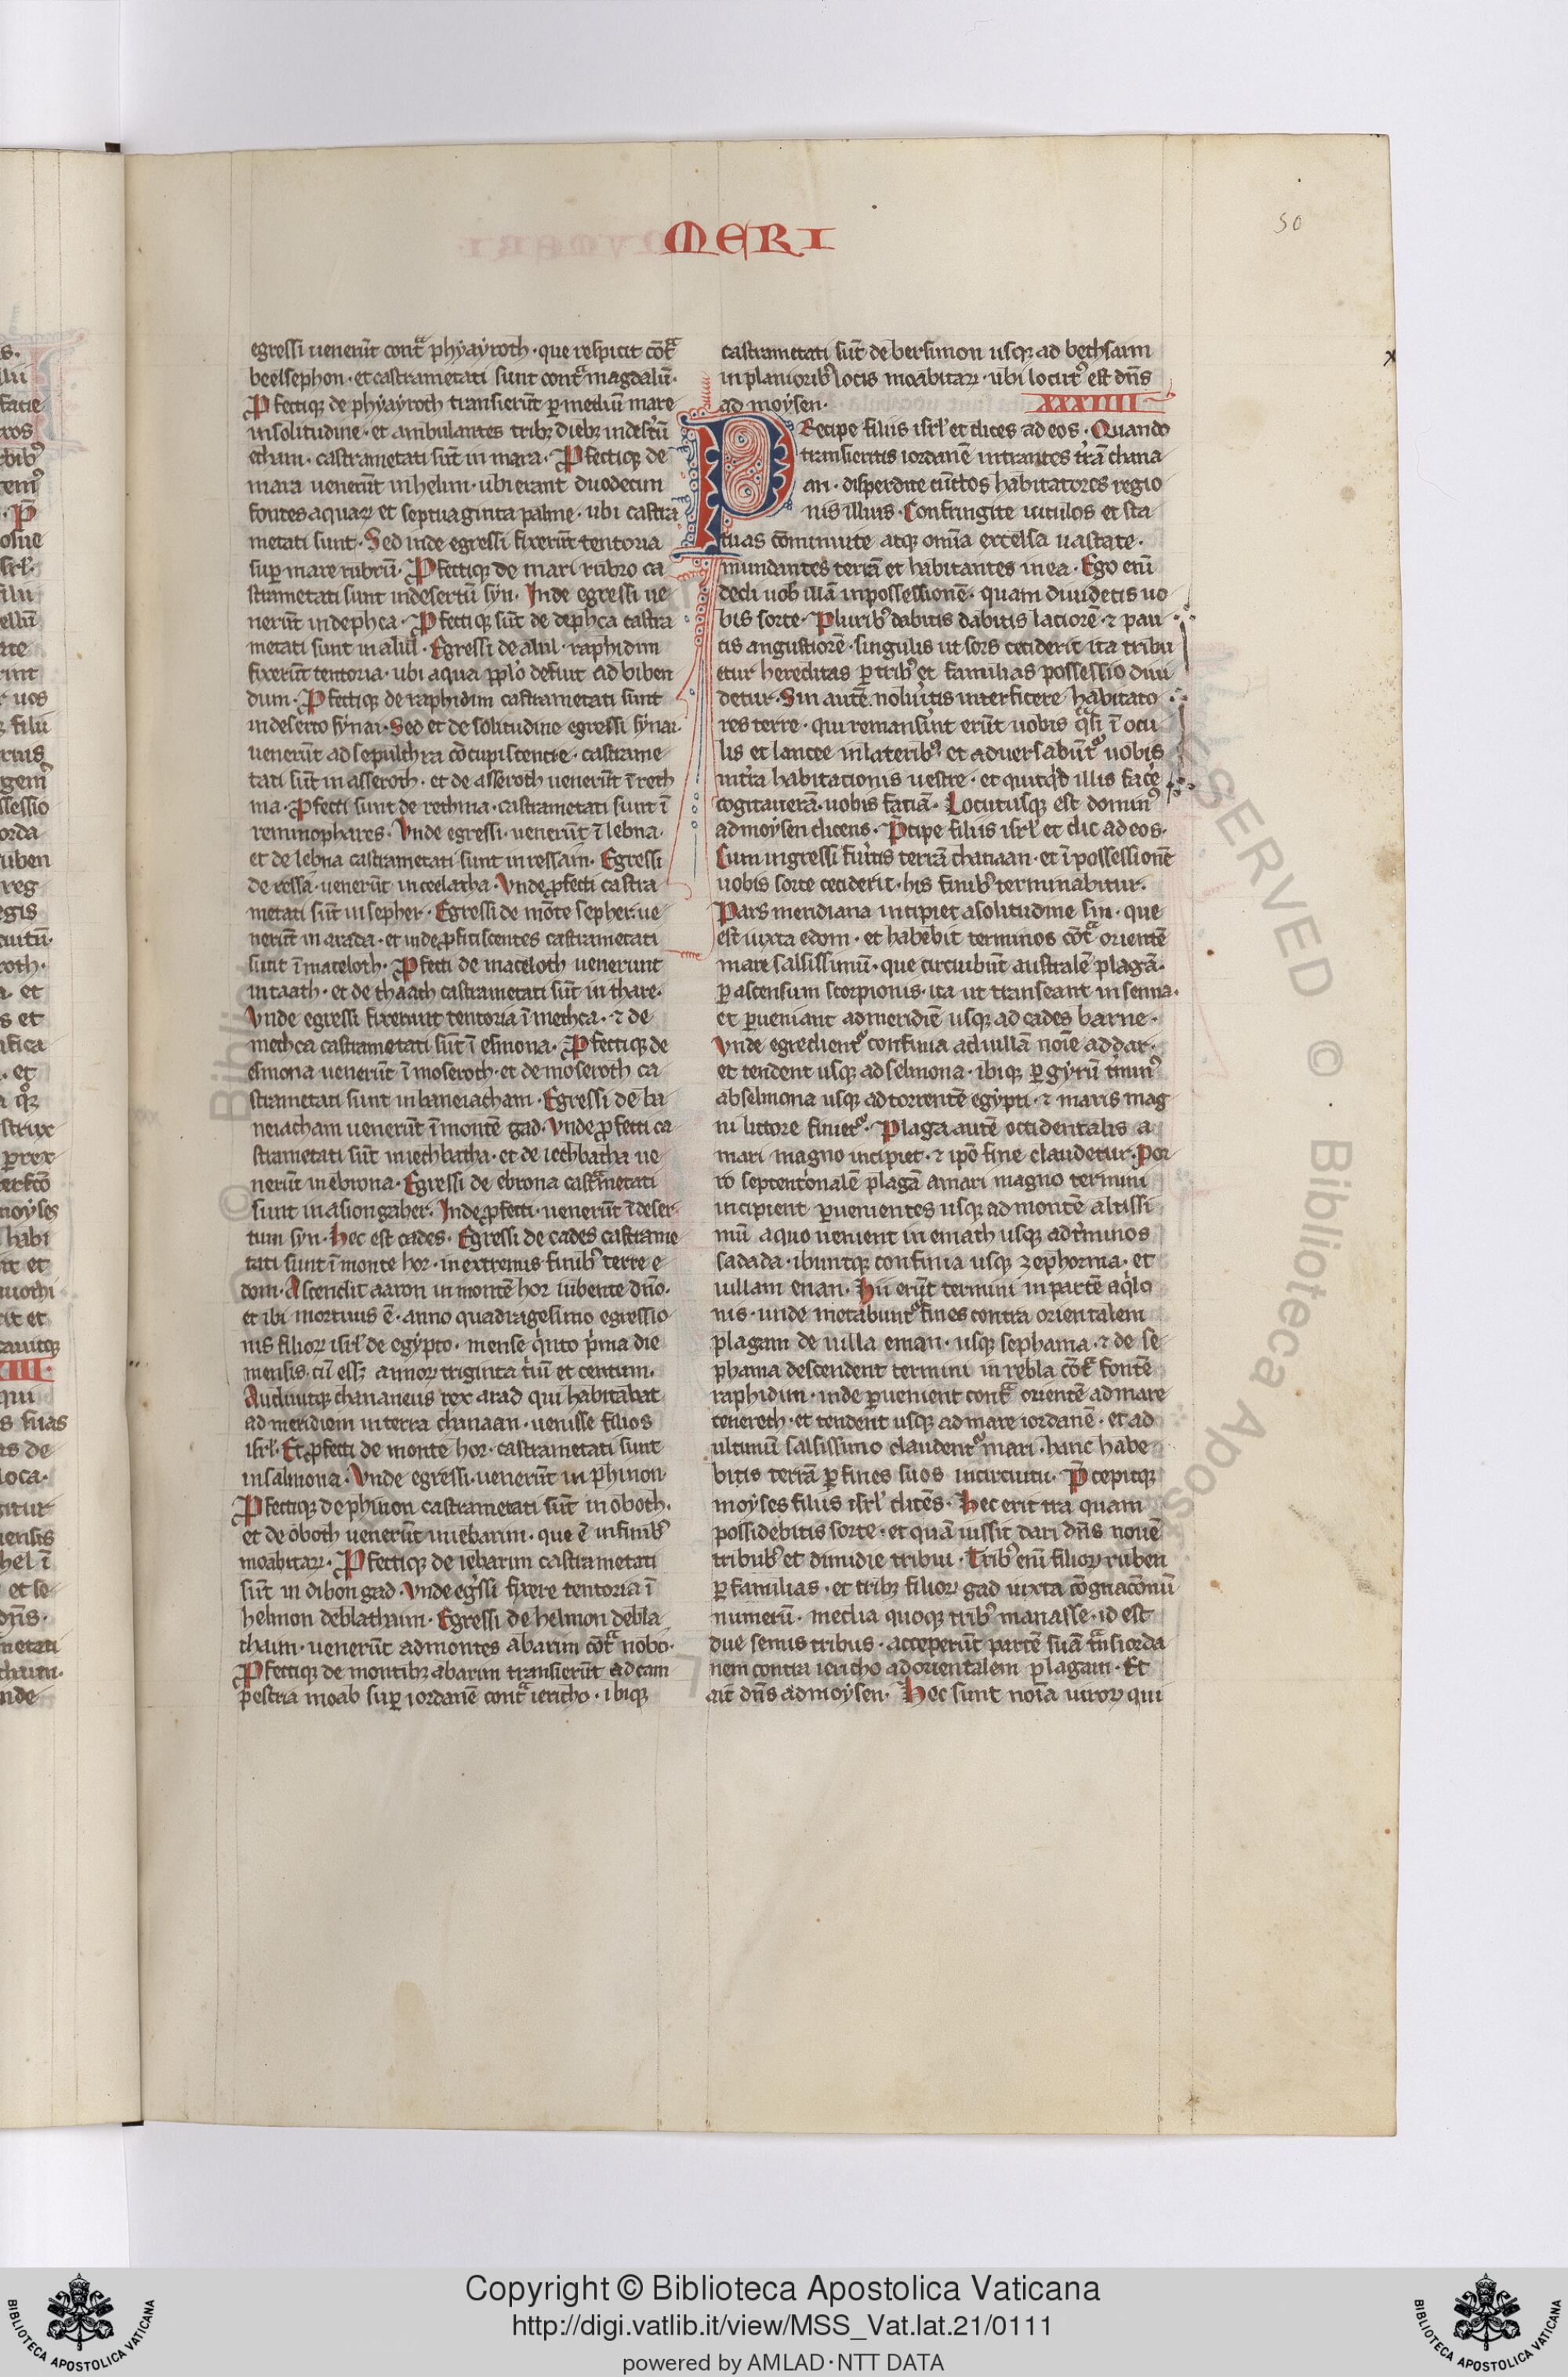 MERI
50
egressi uenerūt contᵃ phẏaẏroth · que respicit cōtᵃ
beelsephon · et castrametati sunt contᵃ magdalū ·
Pfectiqꝫ de phẏaẏroth transierūt ꝑ mediū mare
in solitudine · et ambulantes tribꝫ diebꝫ in desʼtū
etham · castrametati sūt in mara · Pfectiqꝫ de
mara uenerūt in helim · ubi erant duodecim
fontes aquaꝝ et septuaginta palme · ubi castra
metati sunt · Sed inde egressi fixerūt tentoria
suꝑ mare rubrū · Pfectiqꝫ de mari rubro ca
strametati sunt in desertū sẏn · Inde egressi ue
nerūt in dephca · Pfectiqꝫ sūt de dephca castra
metati sunt in alul · Egressi de alul · raphidim
fixerūt tentoria · ubi aqua pplo defuit ad biben
dum · Pfectiqꝫ de raphidim castrametati sunt
in deserto sẏnai · Sed et de solitudine egressi sẏnai ·
uenerūt ad sepulchra cōcupiscencie · castrame
tati sūt in asseroth · et de asseroth uenerūt ī reth
ma · Pfecti sunt de rethma · castrametati sunt ī
remmophares · Vnde egressi · uenerūt ī lebna ·
et de lebna castrametati sunt in ressam · Egressi
de ressa · uenerūt in ceelatha · Vnde ꝓfecti castra
metati sūt in sepher · Egressi de mōte sepher · ue
nerūt in arada · et inde ꝓficiscentes castrametati
sunt ī maceloth · Pfecti de maceloth uenerunt
in taath · et de thaath castrametati sūt in thare ·
Vnde egressi fixerunt tentoria ī methca · ⁊ de
methca castrametati sūt ī esmona · Pfectiqꝫ de
esmona uenerūt ī moseroth · et de moseroth ca
strametati sunt in baneiacham · Egressi de ba
neiacham uenerūt ī montē gad · Vnde ꝓfecti ca
strametati sūt in iethbatha · et de iethbatha ue
nerūt in ebrona · Egressi de ebrona castᵃmetati
sunt in asiongaber · Inde ꝓfecti · uenerūt ī deser
tum sẏn · Hec est cades · Egressi de cades castrame
tati sunt ī monte hor · in extremis finibʼ terre e
dom · Ascendit aaron in montē hor iubente dn̄o ·
et ibi mortuus ē · anno quadragesimo egressio
nis filioꝝ isrl̓ de egẏpto · mense qⁱnto pⁱma die
mensis · cū essꝫ annoꝝ triginta tⁱū et centum ·
Audiuitqꝫ chananeus rex arad qui habitabat
ad meridiem in terra chanaan · uenisse filios
isrl̓ · Et ꝓfecti de monte hor · castrametati sunt
in salmona · Vnde egressi · uenerūt in phinon ·
Pfectiqꝫ de phinon castrametati sūt in oboth ·
et de oboth uenerūt in iebarim · que ē in finibʼ
moabitaꝝ · Pfectiqꝫ de iebarim castrametati
sūt in dibon gad · Vnde egʼssi fixere tentoria ī
helmon deblathaim · Egressi de helmon debla
thaim · uenerūt ad montes abarim cōtᵃ nobo ·
Pfectiqꝫ de montibꝫ abarim transierūt ad cam
pestria moab suꝑ iordanē contᵃ iericho · ibiqꝫ
castrametati sūt de bersimon usqꝫ ad bethsaim
in planioribʼ locis moabitaꝝ · ubi locutʼ est dn̄s
ad moẏsen · XXXIIII
PRecipe filiis isrl̓ et dices ad eos · Quando
transieritis iordanē intrantes tʼrā chana
an · disperdite cūctos habitatores regio
nis illius · Confringite titulos et sta
tuas cōminuite atqꝫ omīa excelsa uastate ·
mundantes terrā et habitantes in ea · Ego enī
dedi uobʼ illā in possessionē · quam diuidetis uo
bis sorte · Pluribʼ dabitis dabitis laciorē · ⁊ pau
cis angustiorē · singulis ut sors ceciderit ita tribu
etur hereditas ꝑ tribʼ et familias possessio diui
detur · Sin autē noluʼitis interficere habitato
res terre · qui remansʼint erūt uobis qᵃsi ī ocu
lis et lancee in lateribʼ · et aduersabūtʼ uobis
in tʼra habitacionis uestre · et quicqⁱd illis facʼe
cogitauerā · uobis faciā · Locutusqꝫ est dominʼ
ad moẏsen dicens · Pᵉcipe filiis isrl̓ et dic ad eos ·
Cum ingressi fuʼitis terrā chanaan · et ī possessionē
uobis sorte ceciderit · his finibʼ terminabitur ·
Pars meridiana incipiet a solitudine sin · que
est iuxta edom · et habebit terminos cōtᵃ orientē
mare salsissimū · que circuibūt australē plagā ·
ꝑ ascensum scorpionis · ita ut transeant in senna ·
et ꝑueniant ad meridiē usqꝫ ad cades barne ·
Vnde egredientʼ confinia ad uillā noīe addar ·
et tendent usqꝫ ad selmona · ibiqꝫ ꝑ gẏrū tʼminʼ
ab selmona usqꝫ ad torrentē egẏpti · ⁊ maris mag
ni littore finietʼ · Plaga autē occidentalis a
mari magno incipiet · ⁊ ip̄o fine claudetur · Por
ro septentⁱonalē plagā a mari magno termini
incipient ꝑuenientes usqꝫ ad montē altissi
mū a quo uenient in emath usqꝫ ad tʼminos
sadada · ibuntqꝫ confinia usqꝫ zephorma · et
uillam enan · Hii erūt termini in partē aqⁱlo
nis · unde metabuntʼ fines contra orientalem
plagam de uilla eman · usqꝫ sephama · ⁊ de se
phama descendent termini in rebla cōtᵃ fontē
raphidim · inde ꝑuenient contᵃ orientē ad mare
cenereth · et tendent usqꝫ ad mare iordanē · et ad
ultimū salsissimo claudentʼ mari · hanc habe
bitis terrā ꝑ fines suos in circuitu · Pᵉcepitqꝫ
moẏses filiis isrl̓ dicēs · Hec erit tra quam
possidebitis sorte · et quā iussit dari dn̄s nouē
tribubʼ et dimidie tribui · Tribʼ enī filioꝝ ruben
ꝑ familias · et tribꝫ filioꝝ gad iuxta cōgnacōnū
numerū · media quoqꝫ tribʼ manasse · id est
due semis tribus · acceperūt partē suā tᵃnsiorda
nem contra iericho ad orientalem plagam · Et
ait dn̄s ad moẏsen · Hec sunt noīa uiroꝝ qui
Copyright © Biblioteca Apostolica Vaticana
http://digi.vatlib.it/view/MSS_Vat.lat.21/0111
powered by AMLAD·NTT DATA
BIBLIOTECA APOSTOLICA VATICANA
BIBLIOTECA APOSTOLICA VATICANA